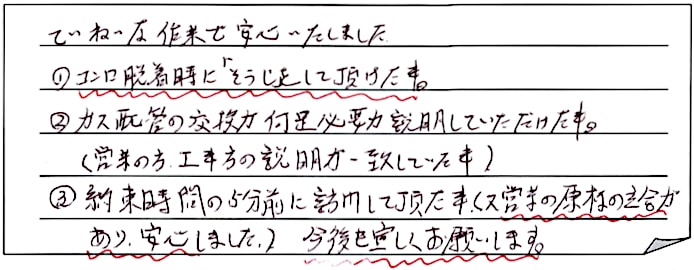 ていねいな作業で安心いたしました
①コンロ脱着時に「そうじ迄して頂けた事。
②ガス配管の交換が何是必要か説明していただけた事。
(営業の方、工事方の説明が一致していた事)
③約束時間の5分前に訪門して頂た事、(又営業の原様の立合が
あり、安心しました。) 今後も宜しくお願いします。